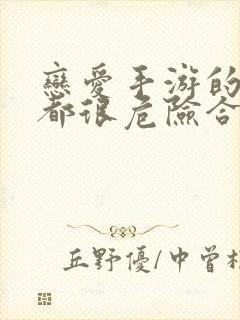 戀愛手游的
都很危險合
丘野優/中曾根